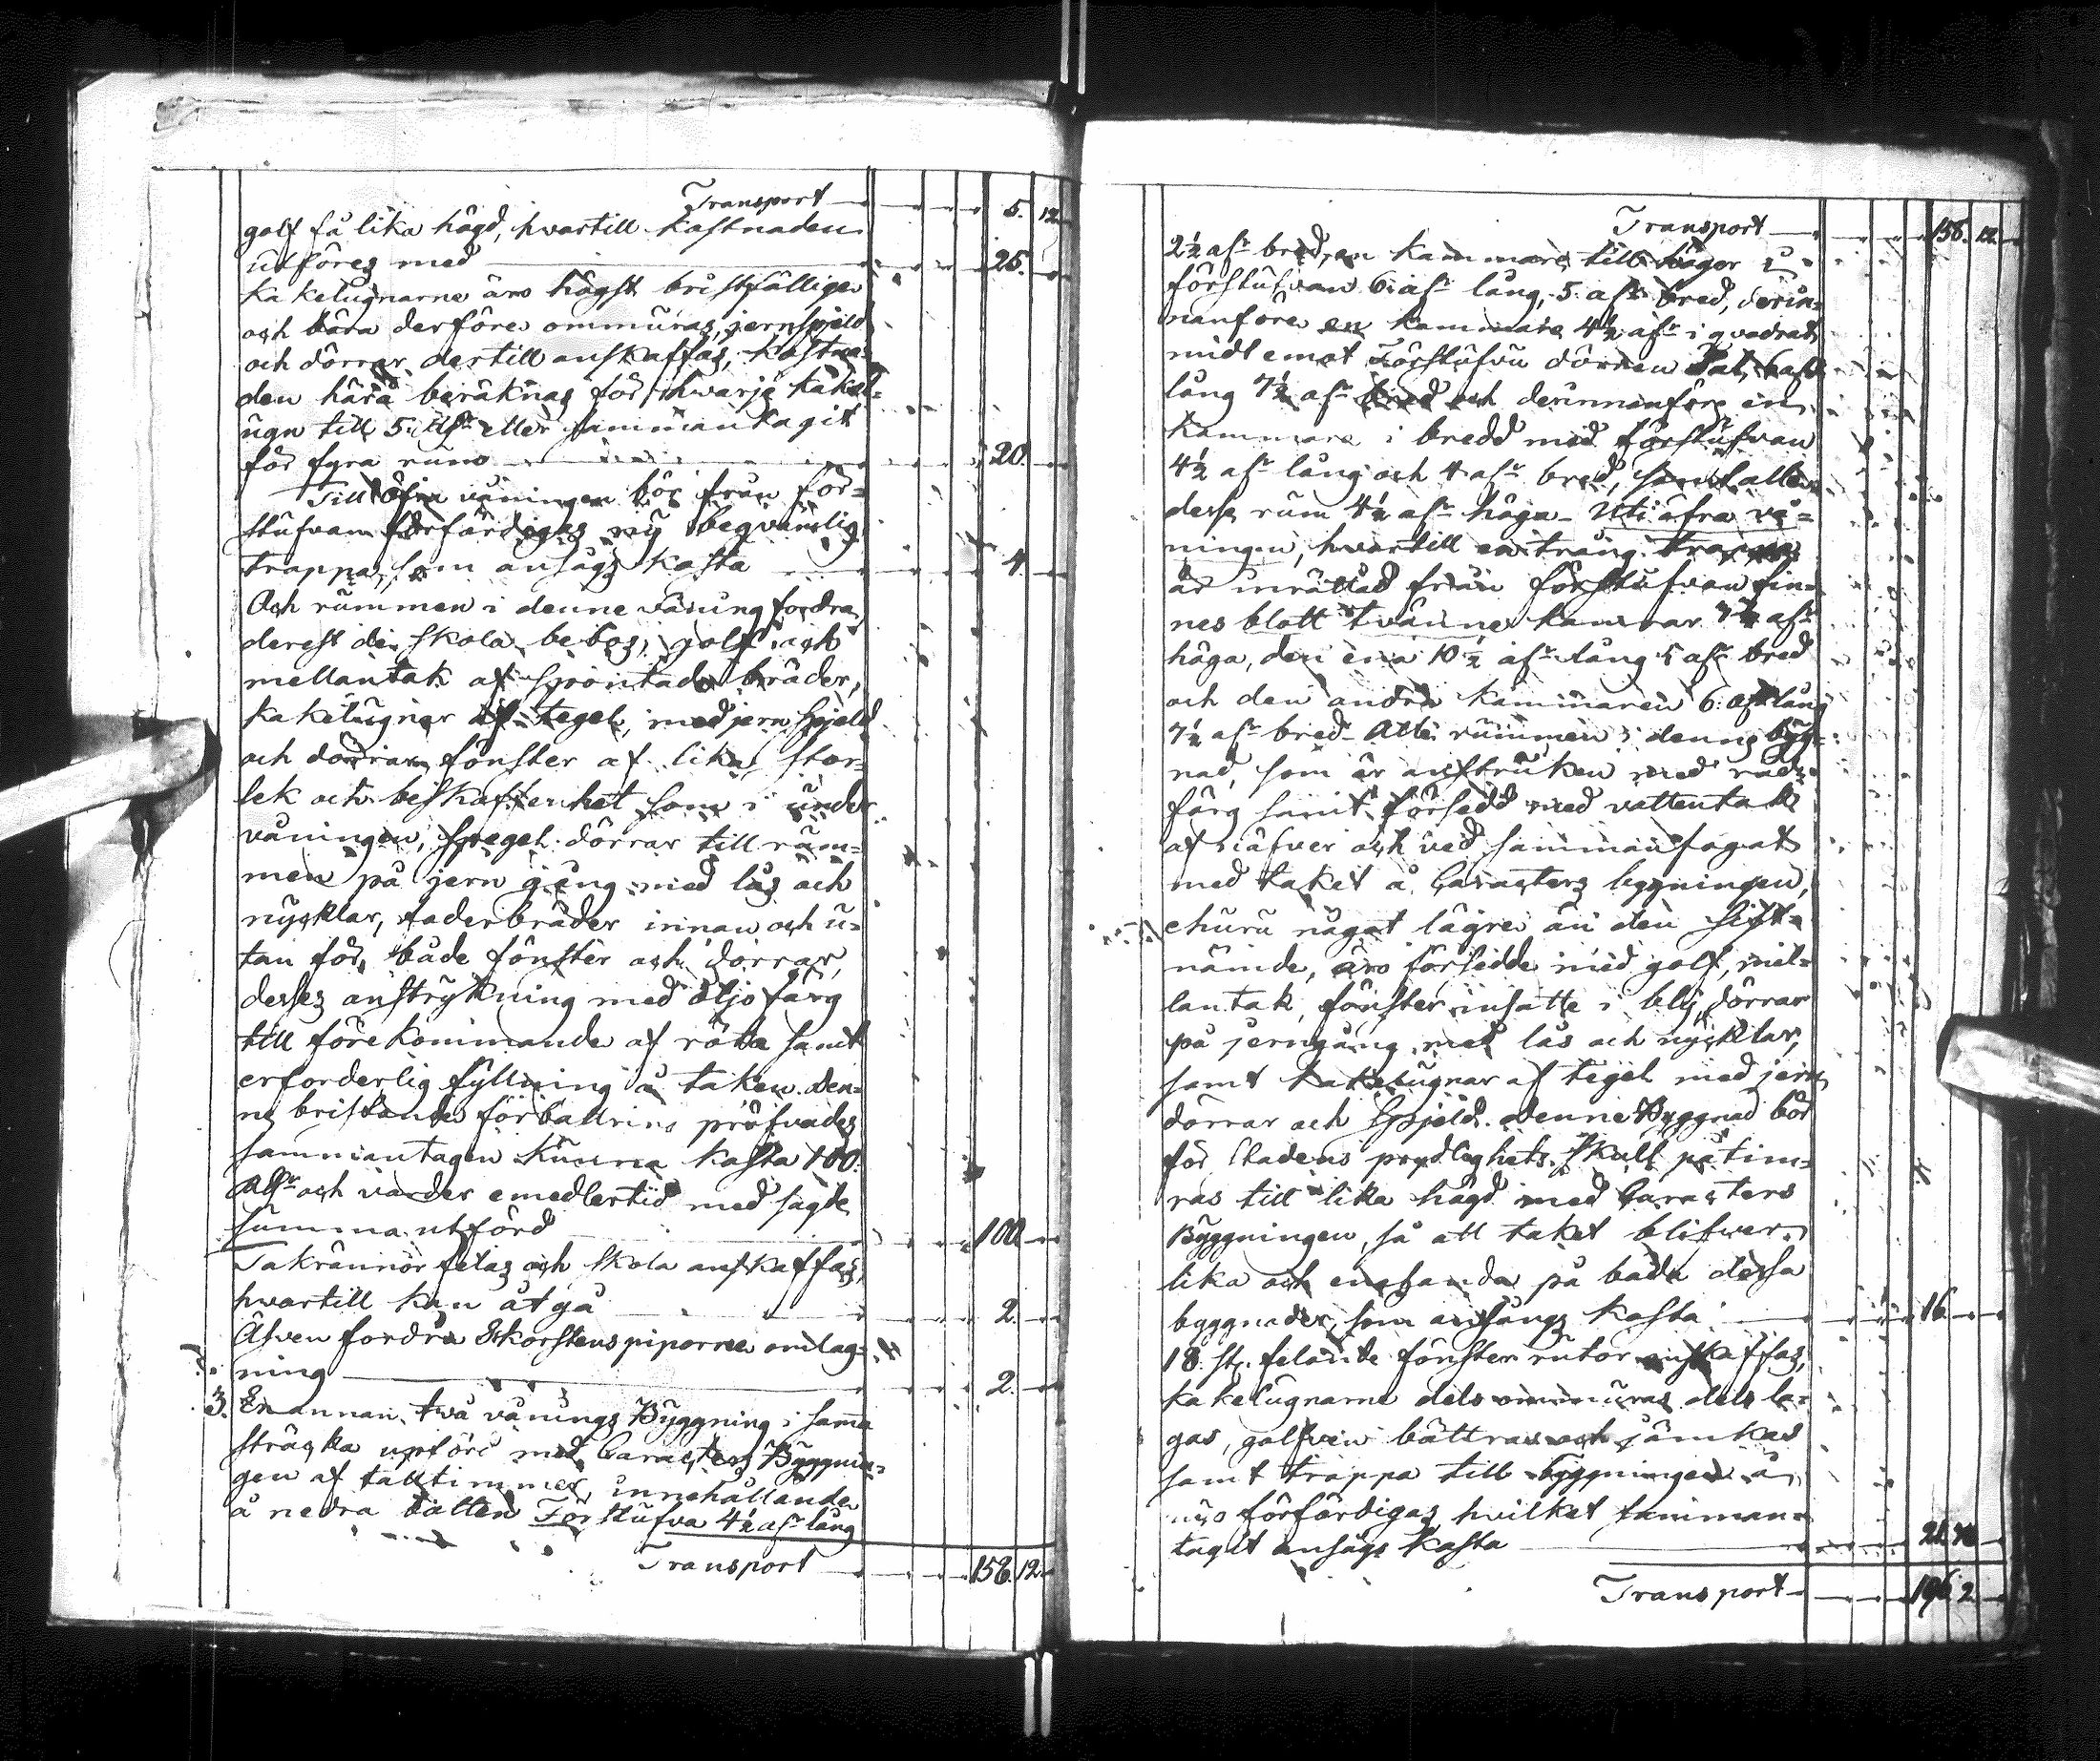 Transport 5. 12.
golf få lika högd, hvartill kostnaden
utföres med 25.
Kakelugnarne äro högst bristfällige
och böra derföre ommuras, jernspjeld
och dörrar dertill anskaffas, kostna-
den håra beräknas för hvarje kakel-
ugn till 5. Rsr eller sammantagit
för fyra rum 20.
Till öfra våningen bör från för-
stufvan förfärdigas ny beqvämlig
trappa, som ansågs kosta 4.
Och rummen i denne våning fordra,
derest de skola bebos, golf och
mellantak af spontade bräder,
Kakelugnar af tegel, med jern spjeld
och dörrar, fönster af lika stor-
lek och beskaffenhet som i under
våningen, spegel dörrar till rum-
men på jern gång med lås och
nycklar, foderbräder innan och u-
tan för, både fönster och dörrar,
desses anstrykning med oljo färg
till förekommande af röta samt
erforderlig fyllning å taken. Den-
ne bristande förbättring pröfvades
sammantagen kunna kosta 100.
Rsr och varder emedlertid med sagde
summa utförd 100.
Takrännor felas och skola anskaffas,
hvartill kan åtgå 2.
Äfven fordra Skorstenspiporne omlag-
ning 2.
3. En annan två vånings Byggning i samma
sträcka upförd med Caracters Byggnin-
gen af talltimmer, innehållande
å nedra botten Förstufva 4½ alr lång
Transport 158. 12.

Transport 158. 12.
2½ alr bred, en kammare till höger i
förstufvan 6 alr lång, 5 alr bred, derin-
nanföre en kammare 4½ alr i qvadrat
midt emot Förstufvu dörren Sal, 6 alr
lång 7½ alr bred och derinnanföre en
Kammare i bredd med förstufvan
4½ alr lång och 4 alr bred, samt alle
desse rum 4½ alr höga. Uti öfra vå-
ningen, hvartill en trång trappa
är inrättad från förstufvan fin-
nes blott tvänne kamrar 3½ alr
höga, den ena 10½ alr lång 5 alr bred
och den andra kammaren 6 alr lång
7½ alr bred. Alle rummen i denne bygg-
nad, som är anstruken med röd-
färg samt försedd med vattentak
af näfver och ved, sammanfogat
med taket å Caracters byggningen,
ehuru något lägre än den sist-
nämde, äro försedde med golf, mel-
lantak, fönster insatte i bly, dörrar
på jerngång med lås och nycklar,
samt kakelugnar af tegel med jern
dörrar och Spjeld. Denne Byggnad bör
för Stadens prydlighets skull påtim-
ras till lika högd med Caracters
Byggningen, så att taket blifver
lika och enahanda på båda dessa
byggnader, som ansågs kosta 16.
18. st. felande fönster rutor anskaffas,
kakelugnarne dels ommuras dels la-
gas, golfven bättras och jämkas
samt trappa till byggningen å
nyo förfärdigas hvilket samman-
tagit ansågs kosta 21.
Transport 196. 2.